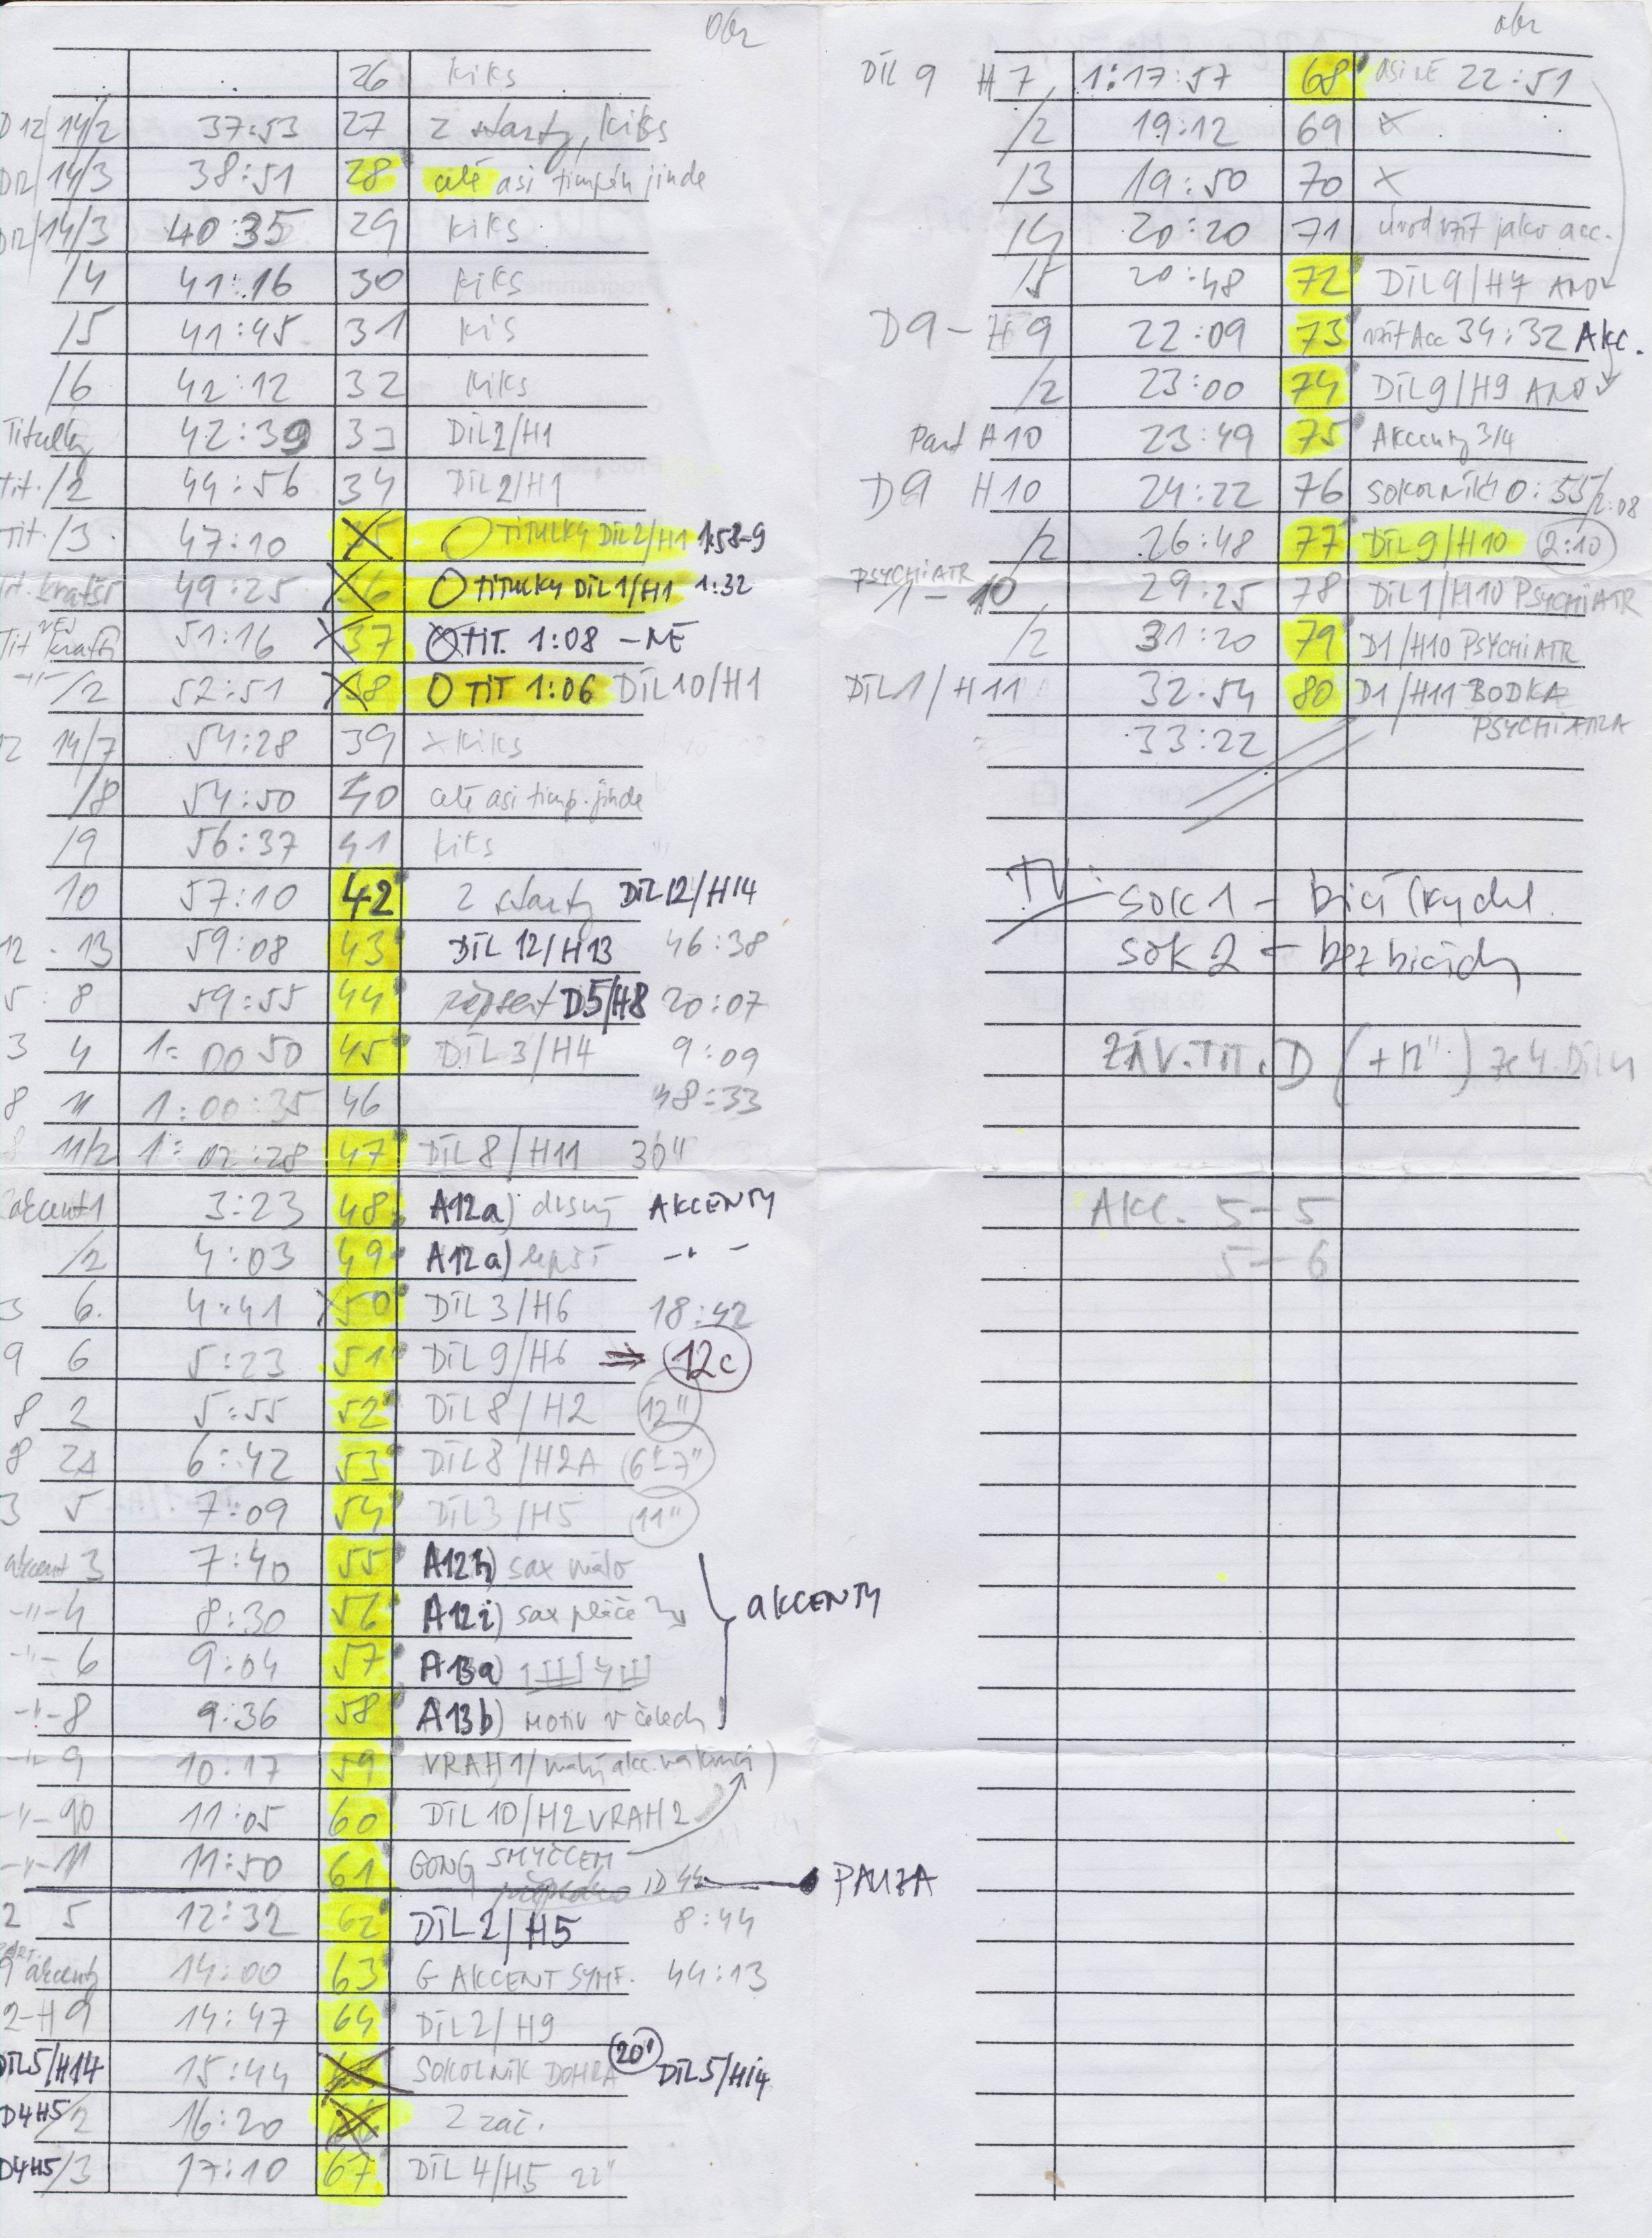 obr
26 kiks
D12/14/2 37:53 27 2 starty, kiks
D12/14/3 38:51 28 celé asi timpán jinde
D12/14/3 40 35 29 kiks
/4 41:16 30 kiks
/5 41:45 31 kis
/6 42:12 32 kiks
Titulky 42:39 33 DÍL2/H1
tit./2 44:56 34 DÍL2/H1
Tit./3 47:10 35 O TITULKY DÍL2/H1 1:58-9
Tit. kratší 49:25 36 O TITULKY DÍL1/H1 1:32
Tit NEJ kratší 51:16 37 O TIT. 1:08 – NE
-"-/2 52:51 38 O TIT 1:06 DÍL10/H1
12 14/7 54:28 39 x kiks
/8 54:50 40 celé asi timp. jinde
/9 56:37 41 kiks
10 57:10 42 2 starty DÍL12/H14
12 - 13 59:08 43 DÍL 12/H13 46:38
5 : 8 59:55 44 D5/H8 20:07
3 4 1: 00 50 45 DÍL 3/H4 9:09
8 11 1:00:35 46 48:33
8 11/2 1: 02:28 47 DÍL 8/H11 30"
akcent1 3:23 48 A12a) drsný AKCENTY
/2 4:03 49 A12a) lepší -"-
3 6. 4:41 50 DÍL 3/H6 18:42
9 6 5:23 51 DÍL 9/H6 ⇒ 12c
8 2 5:55 52 DÍL 8/H2 12"
8 2A 6:42 53 DÍL 8/H2A 6-7"
3 5 7:09 54 DÍL3/H5 11"
akcent 3 7:40 55 A12h) sax málo
-"-4 8:30 56 A12i) sax pláče
akcenty
-"-6 9:04 57 A13a)
-"-8 9:36 58 A13b) motiv v čelech
-"-9 10:17 59 VRAH1/malý akc. na konci)
-"-10 11:05 60 DÍL 10/H2 VRAH 2
-"-11 11:50 61 GONG SMYČCEM
PAUZA
2 5 12:32 62 DÍL 2/H5 8:44
9 akcenty 14:00 63 G AKCENT SYMF. 44:13
2-H9 14:47 64 DÍL 2/H9
DÍL5/H14 15:44 65 SOKOLNÍK DOHRA 20" DÍL5/H14
D4H5/2 16:20 66 2 zač.
D4H5/3 17:10 67 DÍL 4/H5 22"
obr
DÍL 9 H7 1:17:57 68 asi NE 22:51
/2 19:12 69 x
/3 19:50 70 x
/4 20:20 71 úvod vzít jako acc.
/5 20:48 72 DÍL 9/H7 ANO
D9 – H9 22:09 73 vzít Acc 34:32 Akc.
/2 23:00 74 DÍL9/H9 ANO
Part A10 23:49 75 Akcenty 3/4
D9 H10 24:22 76 SOKOLNÍK 0:55/2:08
/2 26:48 77 DÍL 9/H10 2:10
PSYCHIATR 1 – 10 29:25 78 DÍL1/H10 PSYCHIATR
/2 31:20 79 D1/H10 PSYCHIATR
DÍL1/H11 32:54 80 D1/H11 BODKA
PSYCHIATRA
33:22
TV: SOK 1 – bicí
SOK 2 – bez bicích
ZÁV. TIT. D (+12") ze 4. Dílu
Akc. 5 – 5
5 – 6